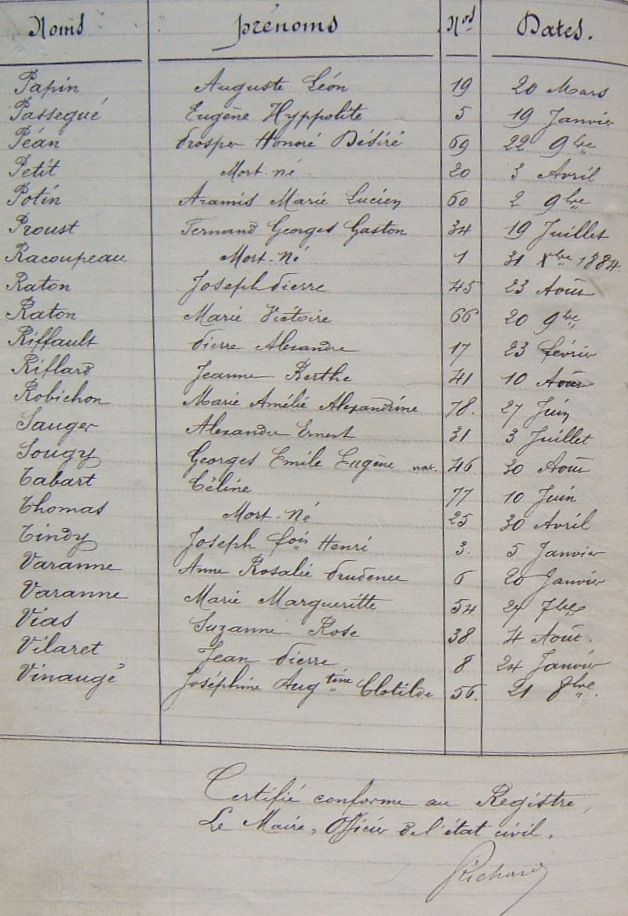 Noms prénoms Nos Dates.
Papin Auguste Léon 19 20 Mars
Passegué Eugène Hyppolite 5 19 Janvier
Péan Prosper Honoré Désiré 69 22 9bre
Petit Mort-né 20 3 Avril
Potin Aramis Marie Lucien 60 2 9bre
Proust Fernand Georges Gaston 34 19 Juillet
Racoupeau Mort-Né 1 31 Xbre 1884
Raton Joseph Pierre 45 23 Août
Raton Marie Victoire 66 20 9bre
Riffault Pierre Alexandre 17 23 février
Riflard Jeanne Berthe 41 10 Août
Robichon Marie Amélie Alexandrine 78. 27 Juin
Sauger Alexandre Ernest 31 3 Juillet
Sougy Georges Emile Eugène nat. 46 30 Août
Tabart Céline 77 10 Juin
Thomas Mort-Né 25 30 Avril
Tindy Joseph fois Henri 3. 5 Janvier
Varanne Anne Rosalie Prudence 6 20 Janvier
Varanne Marie Margueritte 54 27 7bre
Vias Suzanne Rose 38 4 Août.
Vilaret Jean Pierre 8 24 Janvier
Vinaugé Joséphine Augtine Clotilde 56. 21 8bre.
Certifié conforme au Registre,
Le Maire, Officier de l'état civil.
Richard